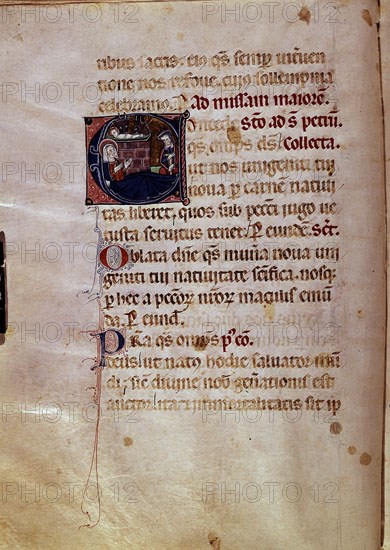 tibus sacris. eius qs semp interuen
tione nos refoue. cuius sollempnia
celebramus. P Ad missam maiorem.
Statio ad s. petrum.
qs omps ds Collecta
ut nos unigeniti tui
noua p carnem natiui
tas liberet, quos sub peccti iugo ue
tusta seruitus tenet. P eunde. Sct.
Oblata dne qs munera noua uni
geniti tui natiuitate scifica. nosq
p hec a peccor nror maculis emun
da. P eund.
Pra qs omps pt co.
deus ut natus hodie saluator mun
di, sic diuine nob generationis est
auctor ita et immortalitatis sit ip
PHOTO 12